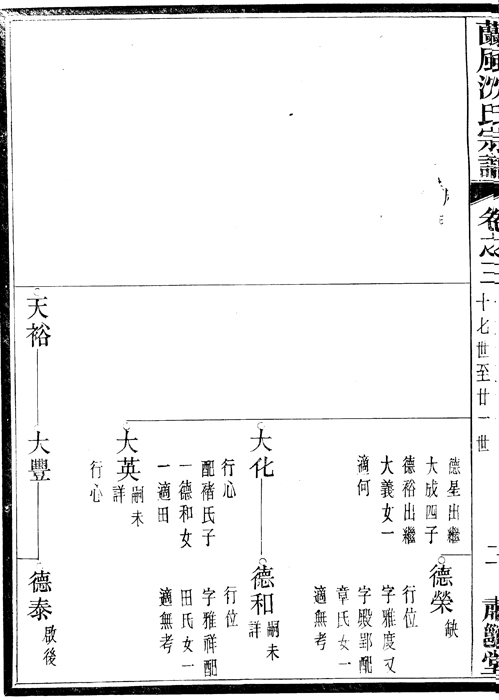 蘭風沈氏宗譜
卷之三
十七世至廿一世
德星出繼
大成四子
德裕出繼
大義女一
適何
德榮
缺
行位
字雅度又
字殿郢配
章氏女一
適無考
大化
行心
配褚氏子
一德和女
一適田
德和
嗣未
詳
行位
字雅祥配
田氏女一
適無考
大英
嗣未
詳
行心
天裕
大豐
德泰
啟後